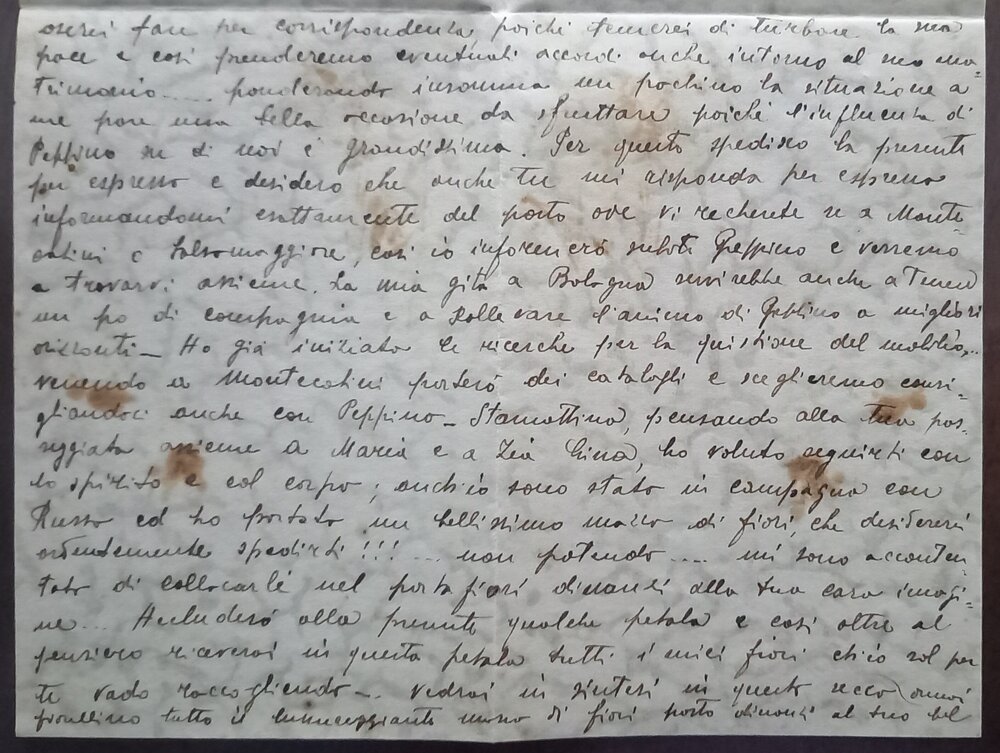 oserei fare per corrispondenza poichè temerei di turbare la sua
pace e così prenderemo eventuali accordi anche intorno al suo ma-
trimonio..... ponderando insomma un pochino la situazione a
me pare una bella occasione da sfruttare poichè l'influenza di
Peppino su di noi è grandissima. Per questo spedisco la presente
per espresso e desidero che anche tu mi risponda per espresso
informandomi esattamente del posto ove vi recherete se a Monte
catini o Salsomaggiore, così io informerò subito Peppino e verremo
a trovarvi assieme. La mia gita a Bologna servirebbe anche a tener
un po di compagnia e a sollevare l'animo di Peppino a migliori
orizzonti_ Ho già iniziato le ricerche per la quistione del mobilio,...
venendo a Montecatini porterò dei cataloghi e sceglieremo consi-
gliandoci anche con Peppino_ Stamattina, pensando alla tua pas-
seggiata assieme a Maria e a Zia Gina, ho voluto seguirti con
lo spirito e col corpo; anch'io sono stato in campagna con
Russo ed ho portato un bellissimo mazzo di fiori, che desidererei
ardentemente spedirti!!!.... non potendo.... mi sono acconten-
tato di collocarlo nel portafiori dinanzi alla tua cara imagi-
ne... Accluderò alla presente qualche petalo e così oltre al
pensiero riceverai in questo petalo tutti i miei fiori ch'io sol per
te vado raccogliendo_.. vedrai in sintesi in questo secco ormai
fiorellino tutto il lussureggiante mazzo di fiori posto dinanzi al tuo bel